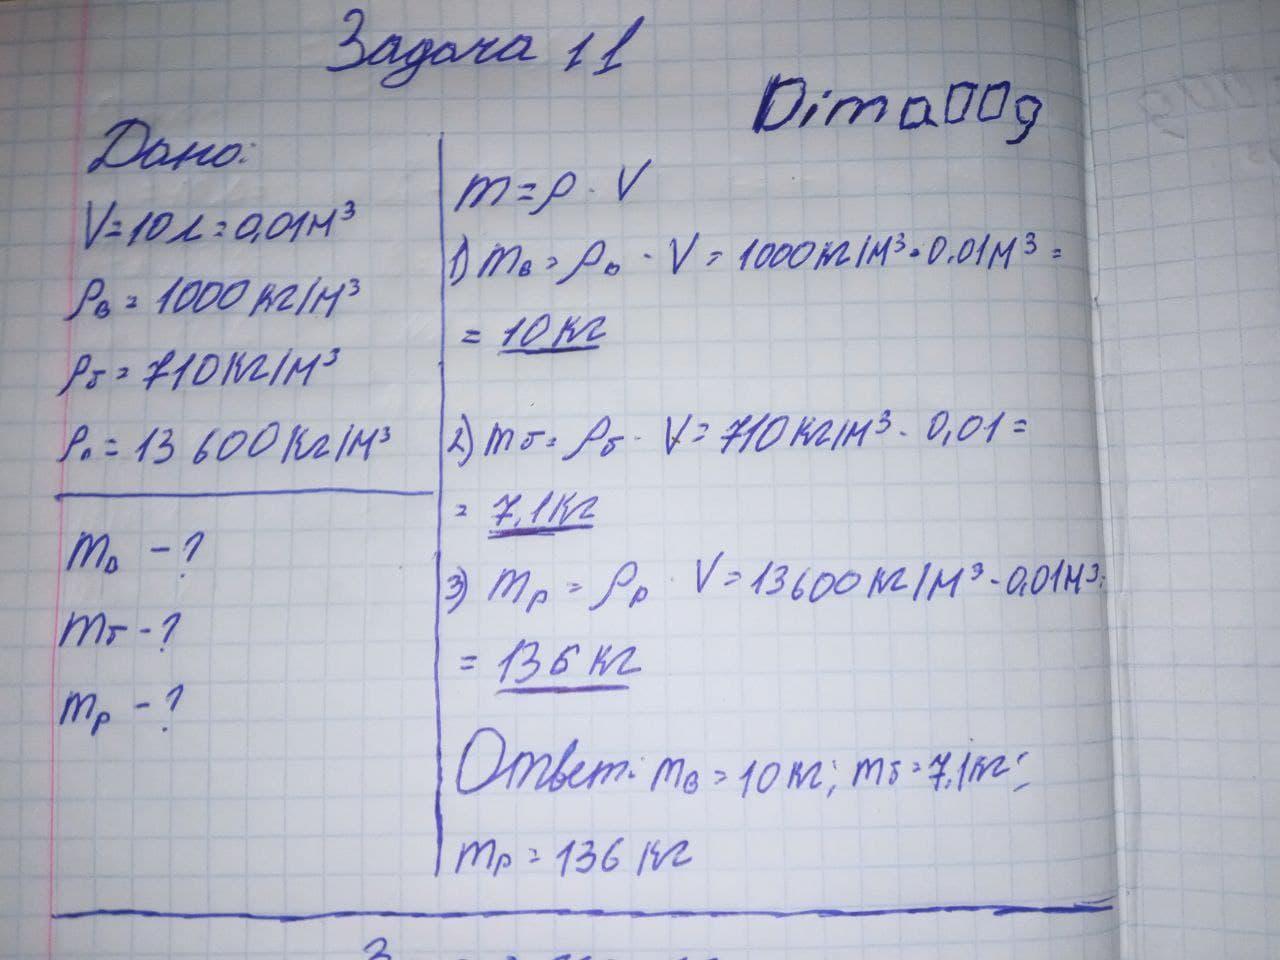 Задача 11
Dima00g
Дано:
V=10л=0,01м³
ρв = 1000 кг/м³
ρб = 710 кг/м³
ρр = 13 600 кг/м³
mв - ?
mб - ?
mр - ?
m = ρ · V
1) mв = ρв · V = 1000 кг/м³ · 0,01м³ =
= 10 кг
2) mб = ρб · V = 710 кг/м³ · 0,01 =
= 7,1 кг
3) mр = ρр · V = 13600 кг/м³ · 0,01м³ =
= 136 кг
Ответ: mв = 10 кг; mб = 7,1 кг;
mр = 136 кг